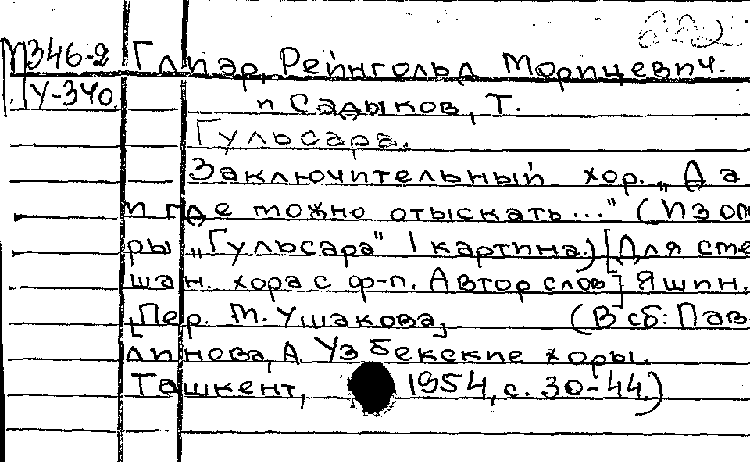 М346-2 Глиэр, Рейнгольд Морицевич.
У-340 и Садыков, Т.
Гульсара.
Заключительный хор. „Да а
и где можно отыскать..." (Из оп
ры „Гульсара" 1 картина.) [Для сме
шан. хора с ф-п. Автор слов] Яшин.
[Пер. М. Ушакова] (В сб: Пав
линова, А. Узбекские хоры.
Ташкент, 1954, с. 30-44.)